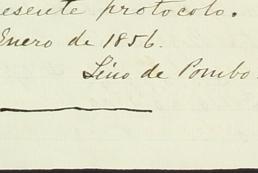 esente protocolo.
Enero de 1856.
Lino de Pombo